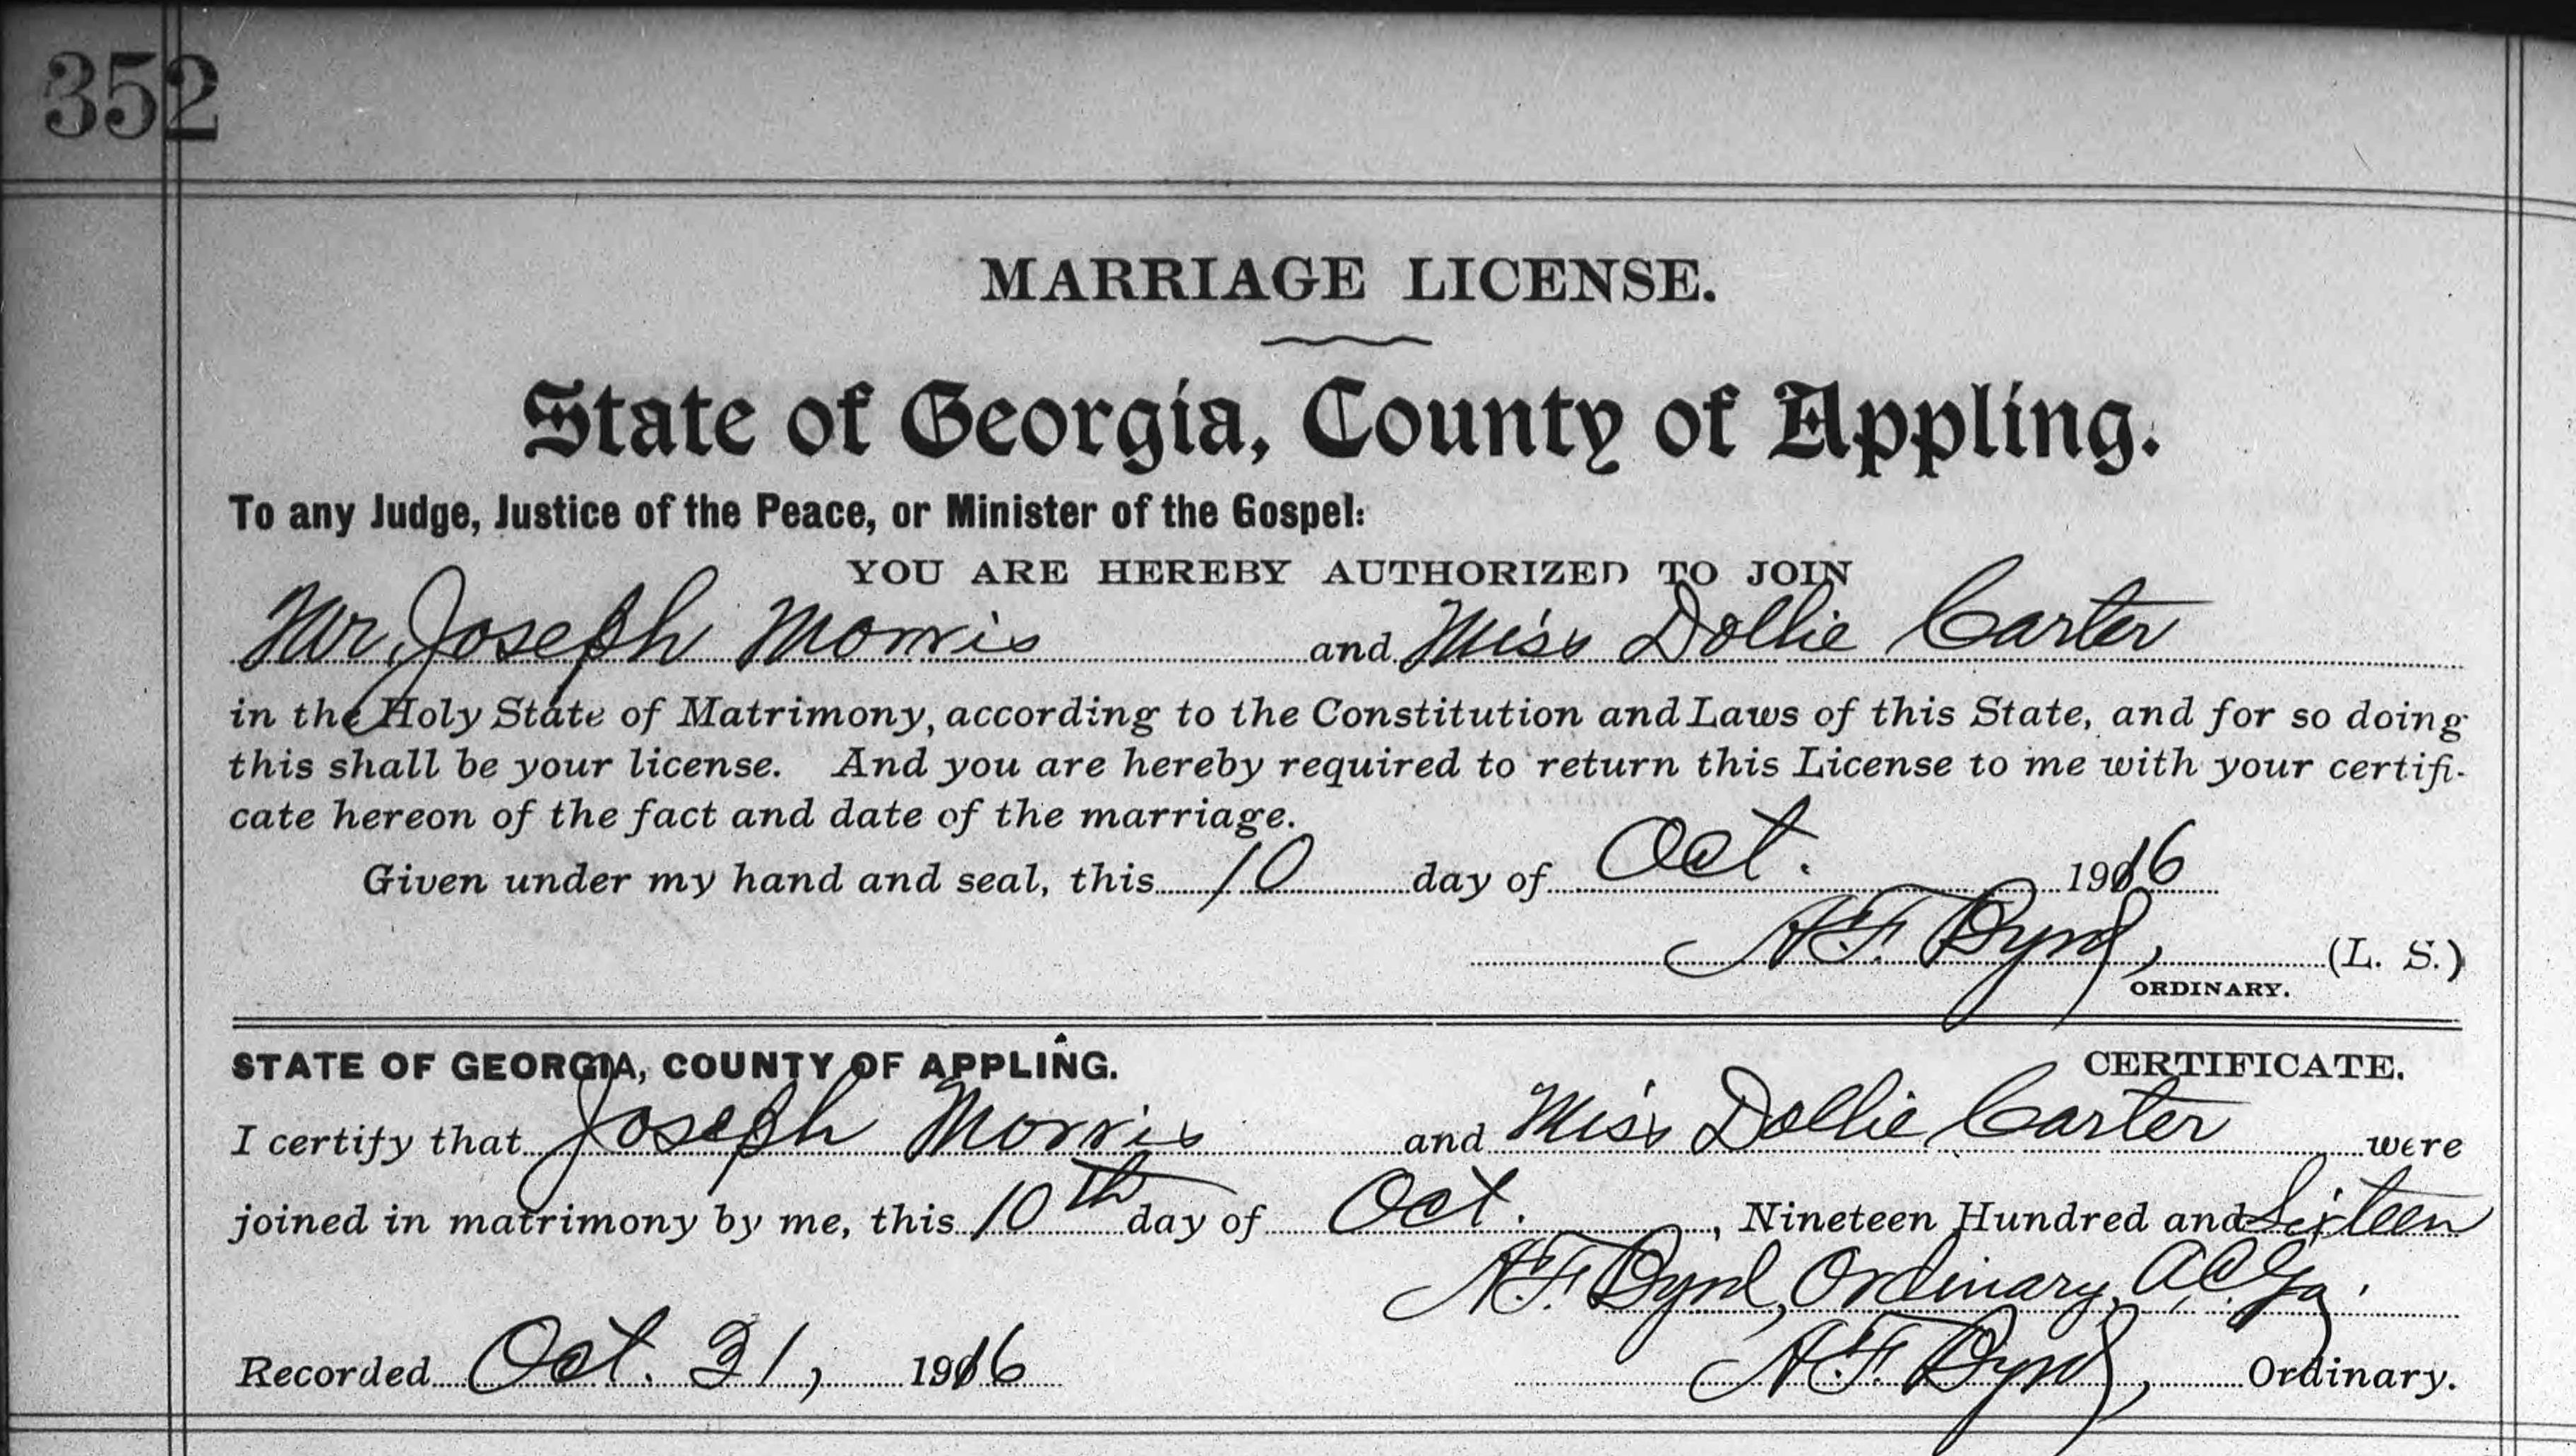 352
MARRIAGE LICENSE.
State of Georgia, County of Appling.
To any Judge, Justice of the Peace, or Minister of the Gospel:
YOU ARE HEREBY AUTHORIZED TO JOIN
Mr. Joseph Morris and Miss Dollie Carter
in the Holy State of Matrimony, according to the Constitution and Laws of this State, and for so doing
this shall be your license. And you are hereby required to return this License to me with your certifi-
cate hereon of the fact and date of the marriage.
Given under my hand and seal, this 10 day of Oct. 1916
H.F. Byrd, (L. S.)
ORDINARY.
STATE OF GEORGIA, COUNTY OF APPLING. CERTIFICATE.
I certify that Joseph Morris and Miss Dollie Carter were
joined in matrimony by me, this 10th day of Oct. , Nineteen Hundred and Sixteen
H.F. Byrd, Ordinary, A.C. Ga.
Recorded Oct. 31, 1916 H.F. Byrd, Ordinary.